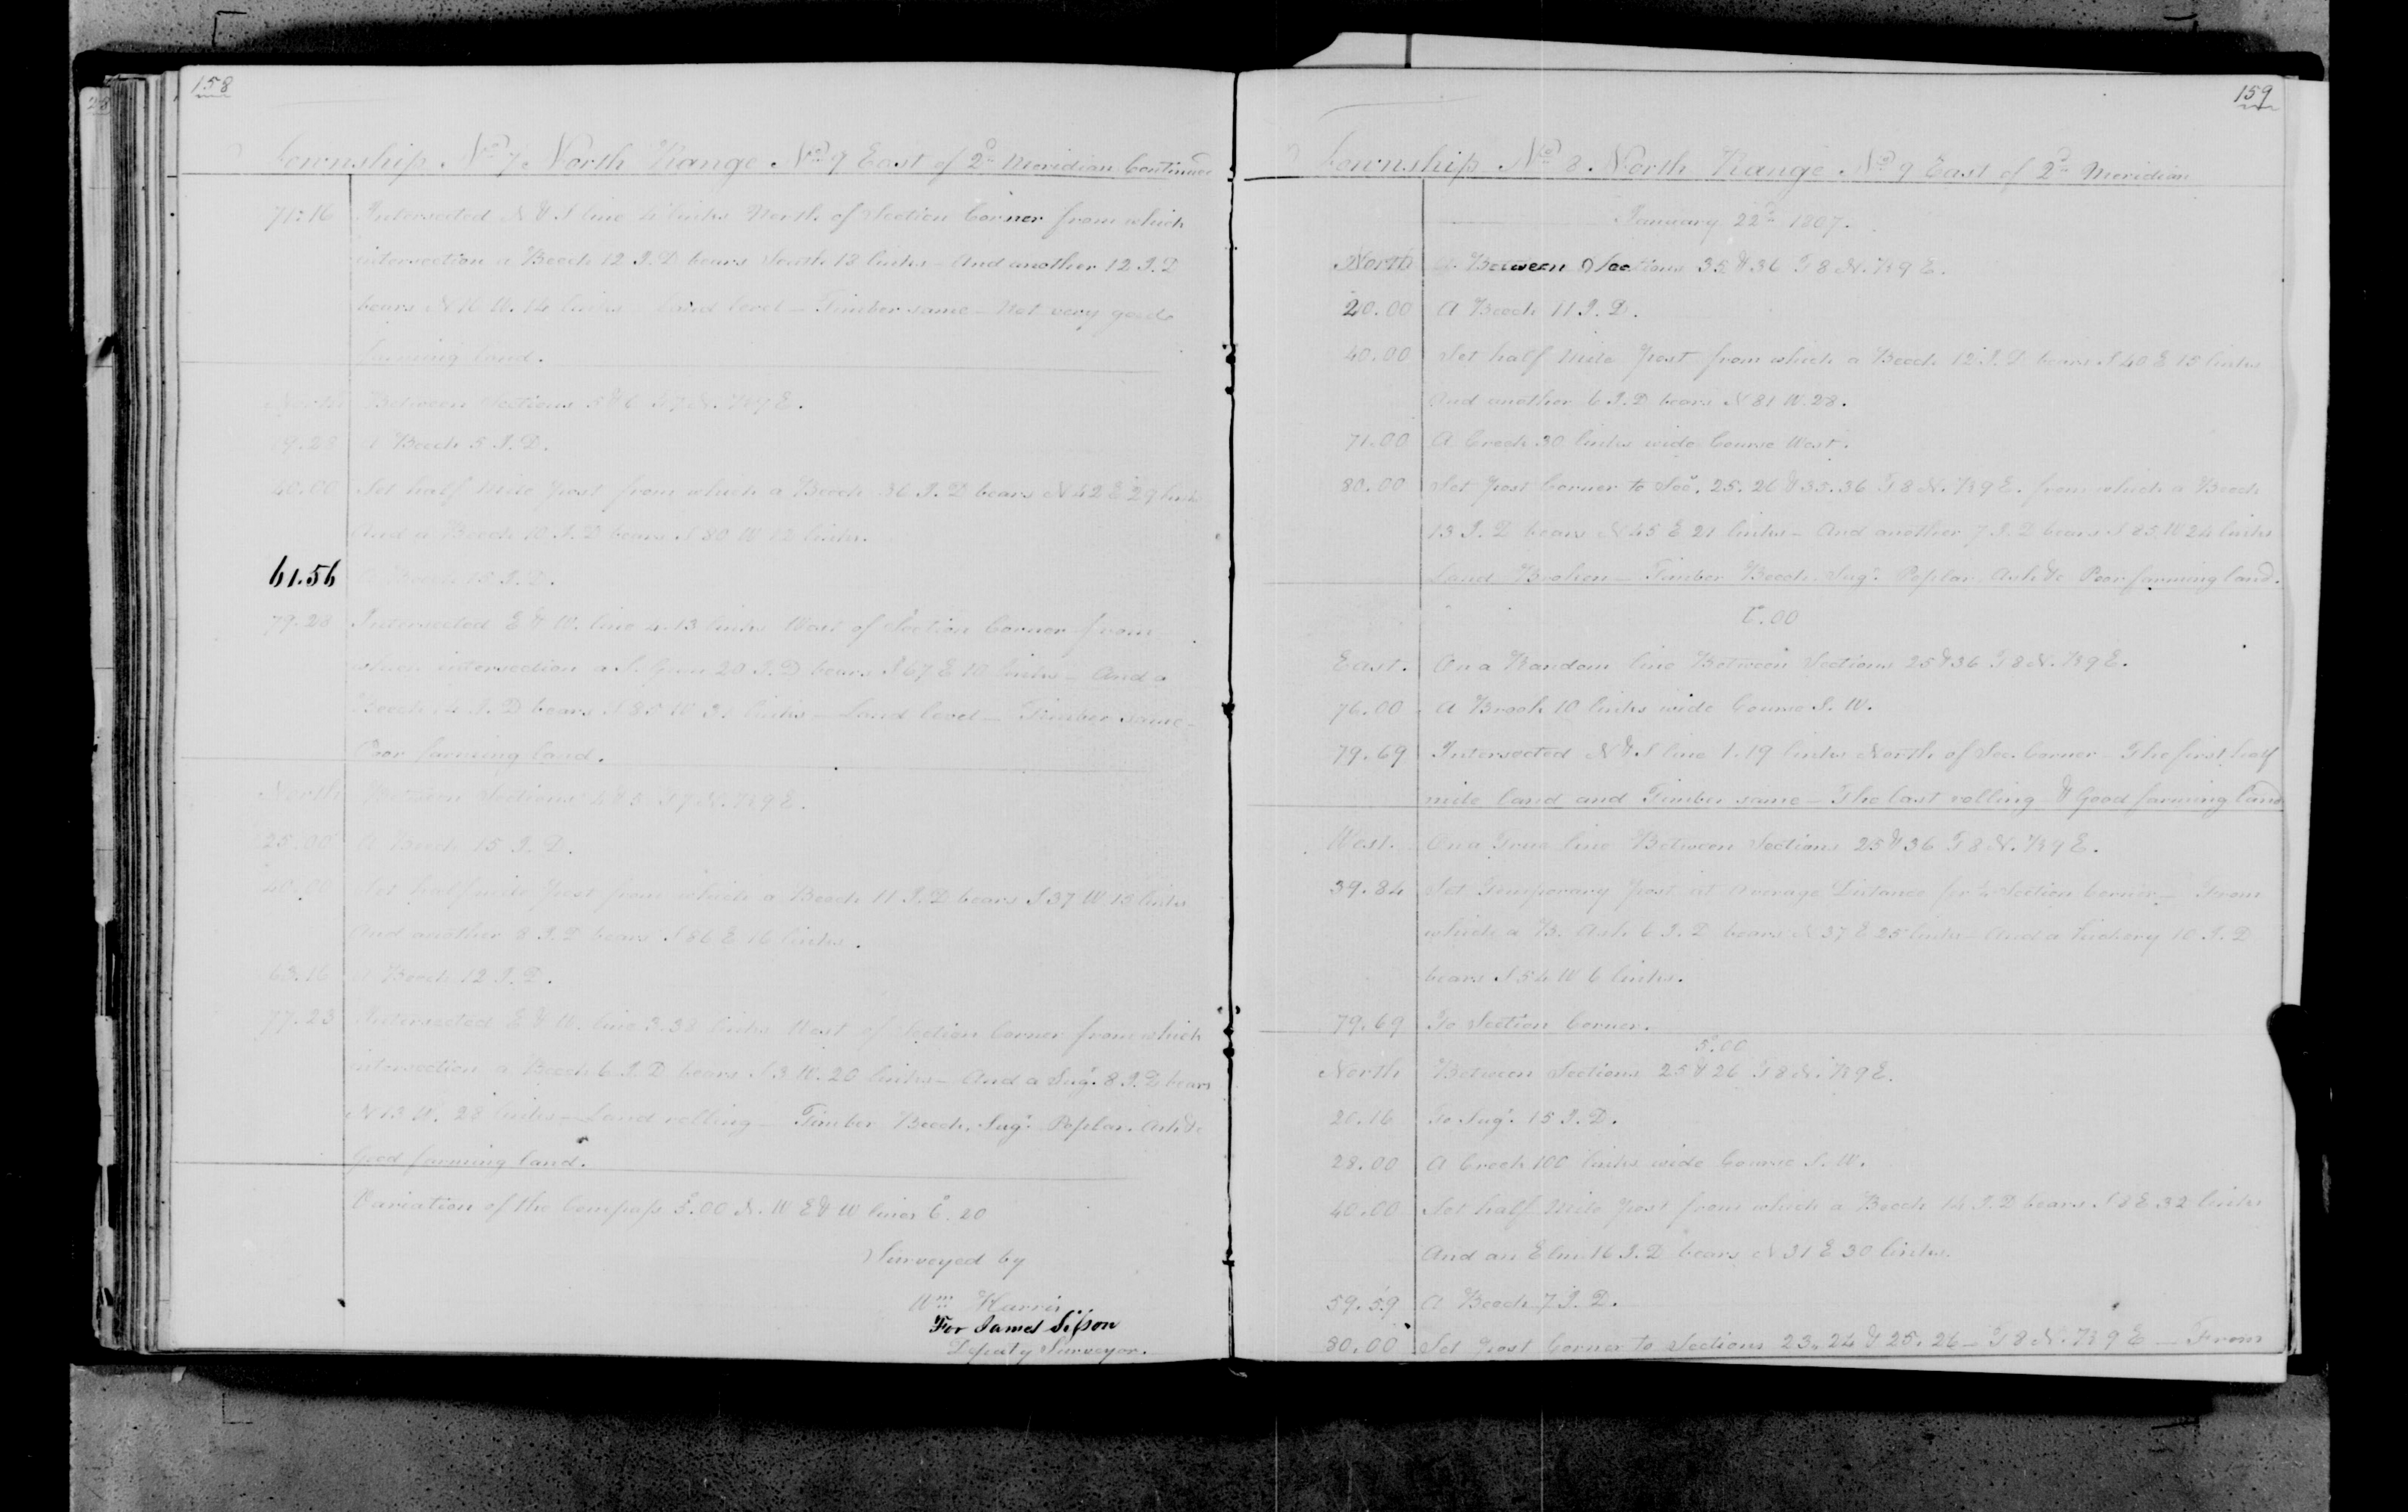 158
Township No 7 North Range No 9 East of 2d Meridian Continued
71.16 Intersected N & S line 41 links North of Section Corner from which
intersection a Beech 12 I.D bears South 13 links - And another 12 I.D
bears N 16 W. 14 links Land level - Timber same - Not very good
farming land.
North Between Sections 5 & 6 T 7 N. R 9 E.
19.28 A Beech 5 I.D.
40.00 Set half Mile post from which a Beech 36 I.D bears N 42 E 29 links
And a Beech 10 I.D bears S 80 W 12 links.
61.56 A Beech 10 I.D.
79.28 Intersected E & W. line 4.13 links West of Section Corner from
which intersection a S. Gum 20 I.D bears S 67 E 10 links - And a
Beech 14 I.D bears S 85 W links - Land level - Timber same -
Poor farming land.
North Between Sections 4 & 5 T 7 N. R 9 E.
25.00 A Beech 15 I.D.
40.00 Set half mile post from which a Beech 11 I.D bears S 37 W 15 links
And another 8 I.D bears S 86 E 16 links.
63.16 A Beech 12 I.D.
77.23 Intersected E & W. line 3.38 links West of Section Corner from which
intersection a Beech 6 I.D bears S 3 W. 20 links - And a Sugr. 8 I.D bears
N 13 W. 28 links - Land rolling - Timber Beech, Sugr. Poplar. Ash &c
Good farming land.
Variation of the Compass 5°.00 N. W E & W lines 6°.20
Surveyed by
Wm Harris
For James Sisson
Deputy Surveyor.
159
Township No 8 North Range No 9 East of 2d Meridian
January 22d 1807.
North Between Sections 35 & 36 T 8 N. R 9 E.
20.00 A Beech 11 I.D.
40.00 Set half Mile Post from which a Beech 12 I.D bears S 40 E 15 links
And another 6 I.D bears N 81 W. 28.
71.00 A Creek 30 links wide Course West.
80.00 Set Post Corner to Secs. 25. 26 & 35. 36 T 8 N. R 9 E. from which a Beech
13 I.D bears N 45 E 21 links - And another 7 I.D bears S 85 W 24 links
Land Broken - Timber Beech, Sugr. Poplar, Ash &c Poor farming land.
6°.00
East. On a Random line Between Sections 25 & 36 T 8 N. R 9 E.
76.00 A Brook 10 links wide Course S. W.
79.69 Intersected N & S line 1.19 links North of Sec. Corner - The first half
mile land and Timber same - The last rolling & Good farming land
West. On a True line Between Sections 25 & 36 T 8 N. R 9 E.
39.84 Set Temporary Post at Average Distance for 1/4 Section Corner - From
which a B. Ash 6 I.D bears N 37 E 25 links And a Hickory 10 I.D
bears S 54 W 6 links.
79.69 To Section Corner.
5°.00
North Between Sections 25 & 26 T 8 N. R 9 E.
20.16 To Sugr. 15 I.D.
28.00 A Creek 100 links wide Course S. W.
40.00 Set half Mile Post from which a Beech 14 I.D bears S 8 E 32 links
And an Elm 16 I.D bears N 31 E 30 links.
59.59 A Beech 7 I.D.
80.00 Set Post Corner to Sections 23. 24 & 25. 26 - T 8 N. R 9 E - From